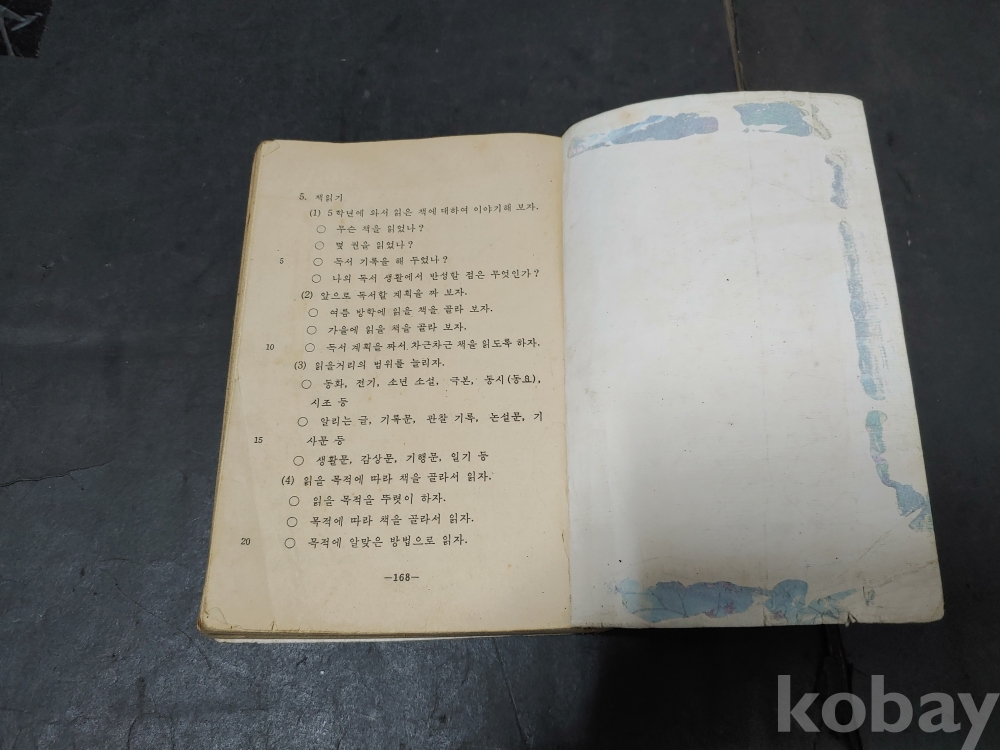 5. 책읽기
(1) 5학년에 와서 읽은 책에 대하여 이야기해 보자.
○ 무슨 책을 읽었나?
○ 몇 권을 읽었나?
5 ○ 독서 기록을 해 두었나?
○ 나의 독서 생활에서 반성할 점은 무엇인가?
(2) 앞으로 독서할 계획을 짜 보자.
○ 여름 방학에 읽을 책을 골라 보자.
○ 가을에 읽을 책을 골라 보자.
10 ○ 독서 계획을 짜서 차근차근 책을 읽도록 하자.
(3) 읽을거리의 범위를 늘리자.
○ 동화, 전기, 소년 소설, 극본, 동시(동요),
시조 등
○ 알리는 글, 기록문, 관찰 기록, 논설문, 기
15 사문 등
○ 생활문, 감상문, 기행문, 일기 등
(4) 읽을 목적에 따라 책을 골라서 읽자.
○ 읽을 목적을 뚜렷이 하자.
○ 목적에 따라 책을 골라서 읽자.
20 ○ 목적에 알맞은 방법으로 읽자.
—168—
kobay